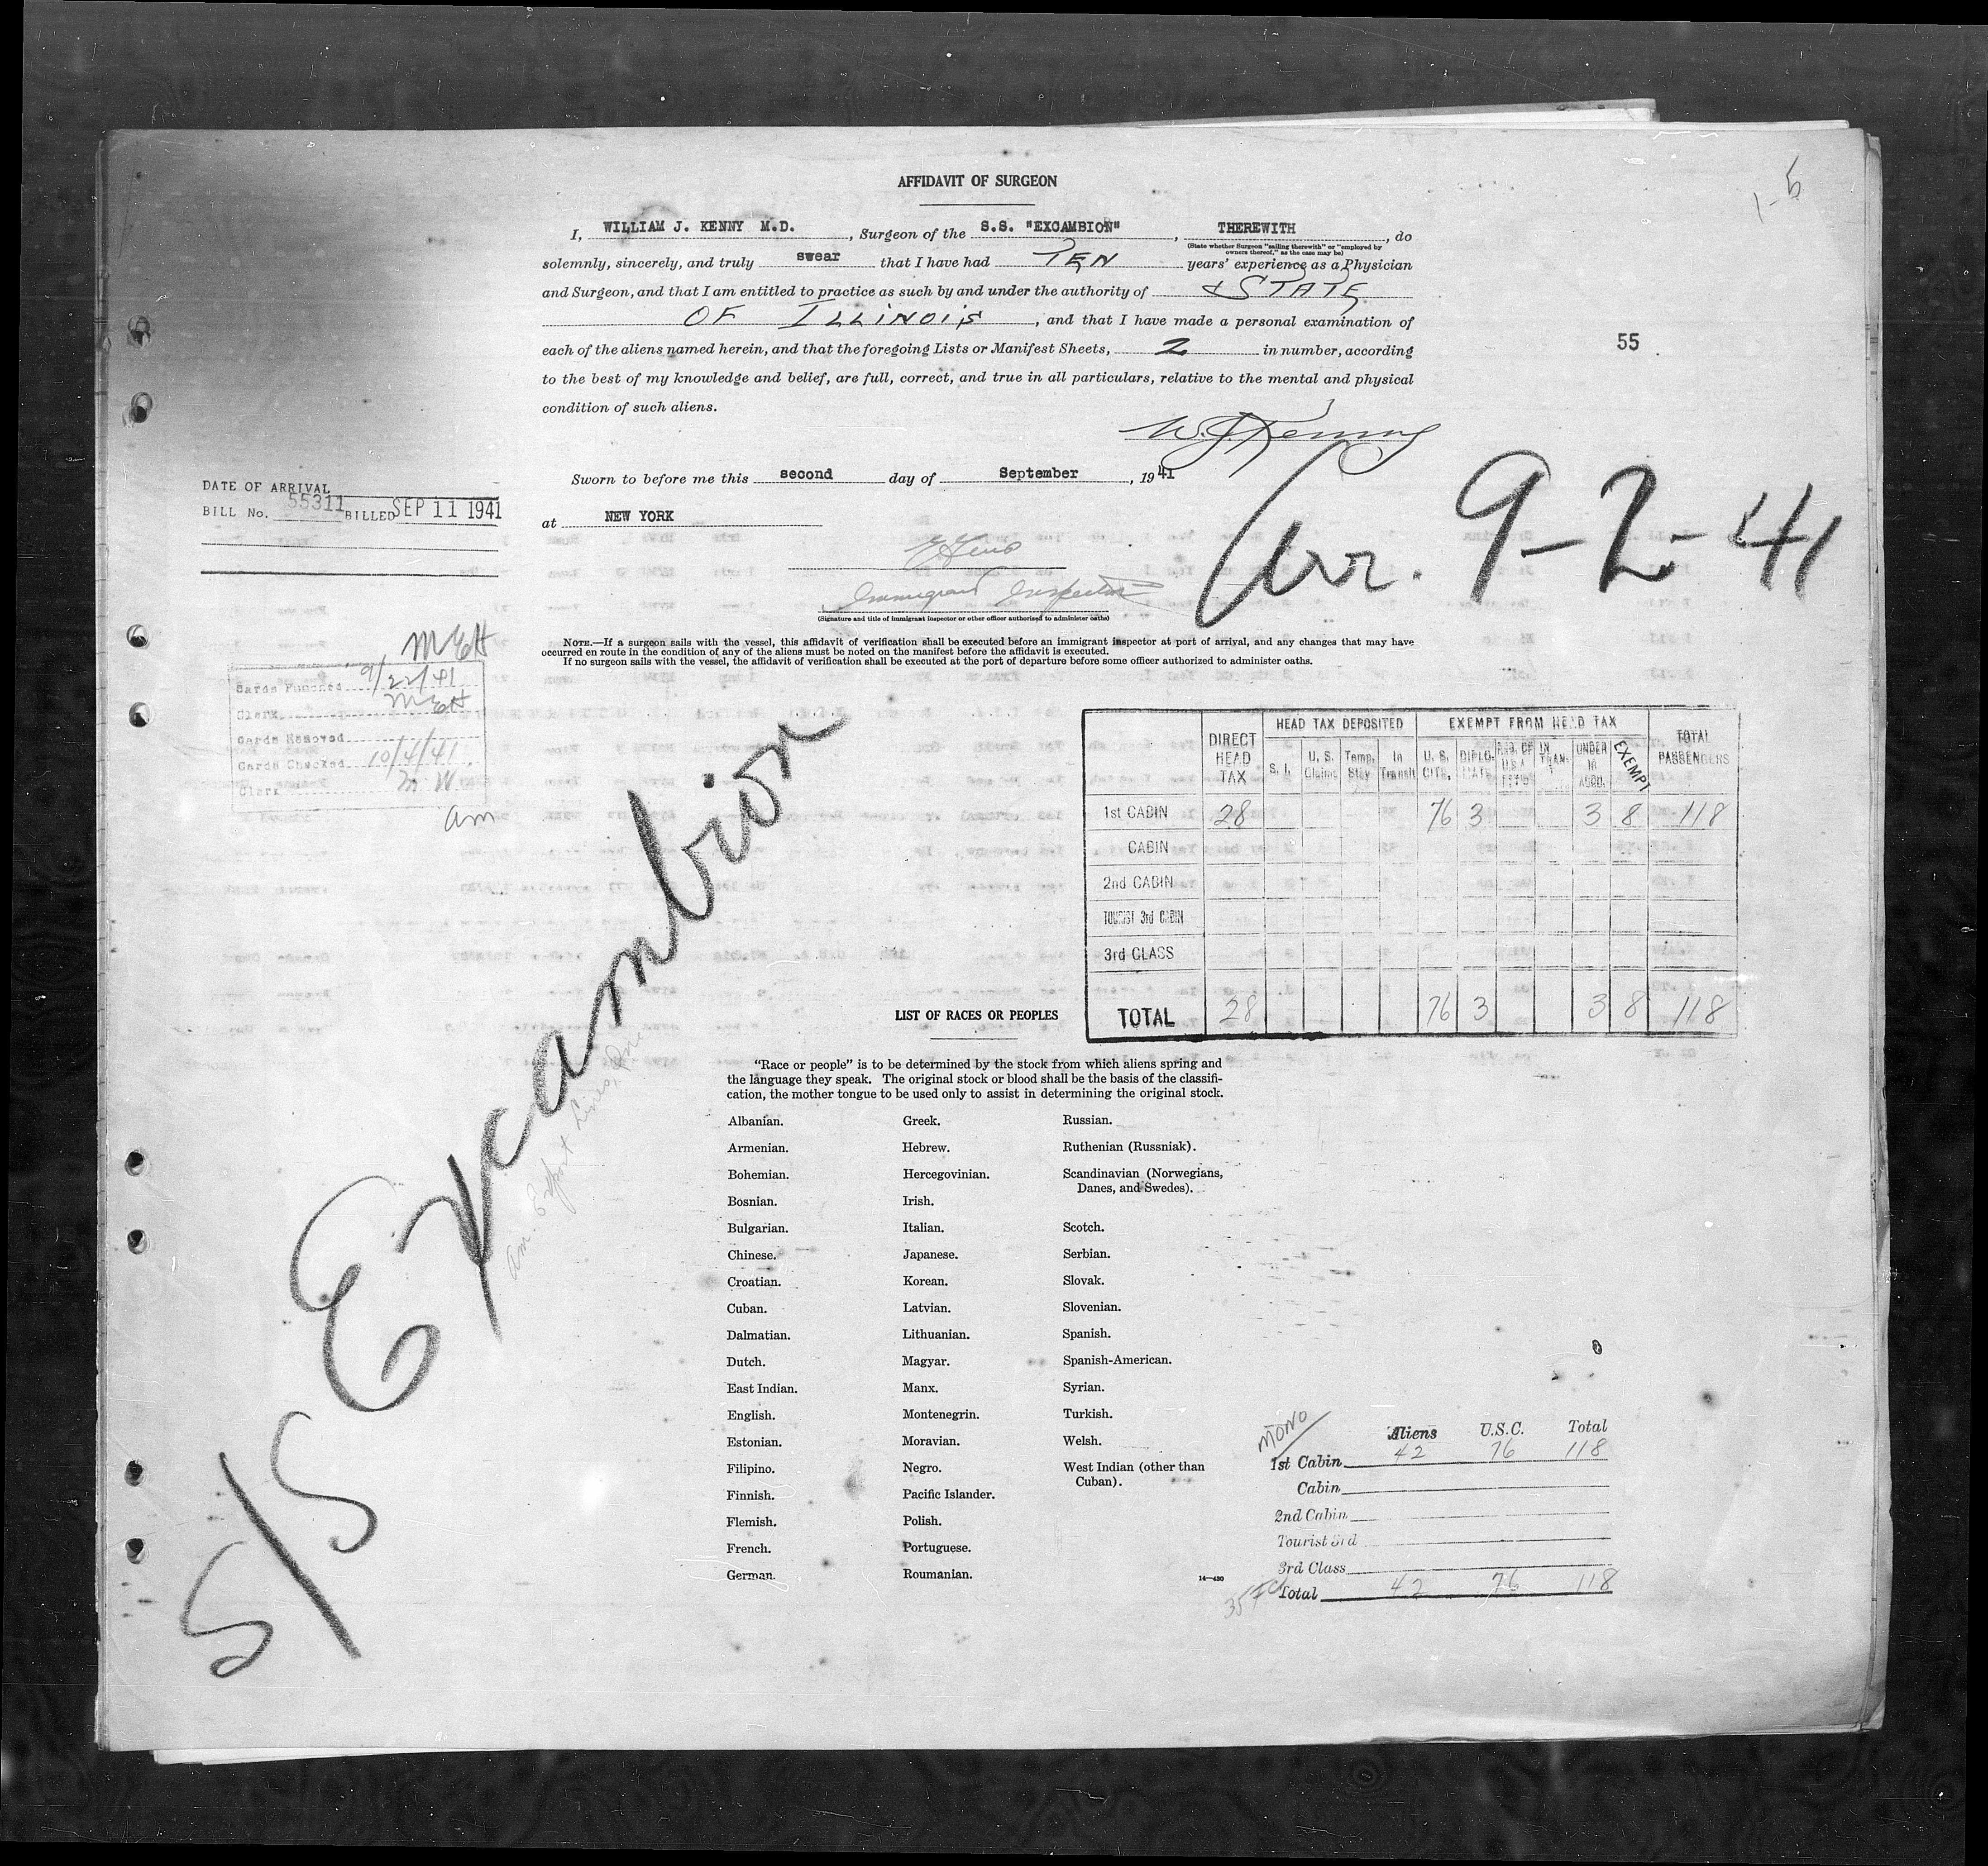 AFFIDAVIT OF SURGEON
1-5
I, WILLIAM J. KENNY M.D. , Surgeon of the S.S. "EXCAMBION" , THEREWITH , do
(State whether Surgeon "sailing therewith" or "employed by
owners thereof," as the case may be)
solemnly, sincerely, and truly swear that I have had TEN years' experience as a Physician
and Surgeon, and that I am entitled to practice as such by and under the authority of STATE
OF ILLINOIS , and that I have made a personal examination of
each of the aliens named herein, and that the foregoing Lists or Manifest Sheets, 2 in number, according
to the best of my knowledge and belief, are full, correct, and true in all particulars, relative to the mental and physical
condition of such aliens.
55
W. J. Kenny
Sworn to before me this second day of September , 1941
at NEW YORK
Immigrant Inspector
(Signature and title of immigrant inspector or other officer authorized to administer oaths)
Arr. 9-2-41
DATE OF ARRIVAL
BILL No. 55311 BILLED SEP 11 1941
NOTE.—If a surgeon sails with the vessel, this affidavit of verification shall be executed before an immigrant inspector at port of arrival, and any changes that may have
occurred en route in the condition of any of the aliens must be noted on the manifest before the affidavit is executed.
If no surgeon sails with the vessel, the affidavit of verification shall be executed at the port of departure before some officer authorized to administer oaths.
MEH
Cards Punched 9/22/41
Clerk MEH
Cards Removed
Cards Checked 10/4/41
Clerk M W
am
S/S Excambion
Am. Export Lines, Inc
DIRECT HEAD TAX HEAD TAX DEPOSITED EXEMPT FROM HEAD TAX TOTAL PASSENGERS
S. I. U. S. Claims Temp. Stay In Transit U. S. CITS. DIPLO- MATS IN TRAN- UNDER 16 ACCD. EXEMPT
1st CABIN 28 76 3 3 8 118
CABIN
2nd CABIN
TOURIST 3rd CABIN
3rd CLASS
TOTAL 28 76 3 3 8 118
LIST OF RACES OR PEOPLES
"Race or people" is to be determined by the stock from which aliens spring and
the language they speak. The original stock or blood shall be the basis of the classifi-
cation, the mother tongue to be used only to assist in determining the original stock.
Albanian.
Armenian.
Bohemian.
Bosnian.
Bulgarian.
Chinese.
Croatian.
Cuban.
Dalmatian.
Dutch.
East Indian.
English.
Estonian.
Filipino.
Finnish.
Flemish.
French.
German.
Greek.
Hebrew.
Hercegovinian.
Irish.
Italian.
Japanese.
Korean.
Latvian.
Lithuanian.
Magyar.
Manx.
Montenegrin.
Moravian.
Negro.
Pacific Islander.
Polish.
Portuguese.
Roumanian.
Russian.
Ruthenian (Russniak).
Scandinavian (Norwegians,
Danes, and Swedes).
Scotch.
Serbian.
Slovak.
Slovenian.
Spanish.
Spanish-American.
Syrian.
Turkish.
Welsh.
West Indian (other than
Cuban).
14—430
MONO
Aliens U.S.C. Total
1st Cabin 42 76 118
Cabin
2nd Cabin
Tourist 3rd
3rd Class
Total 42 76 118